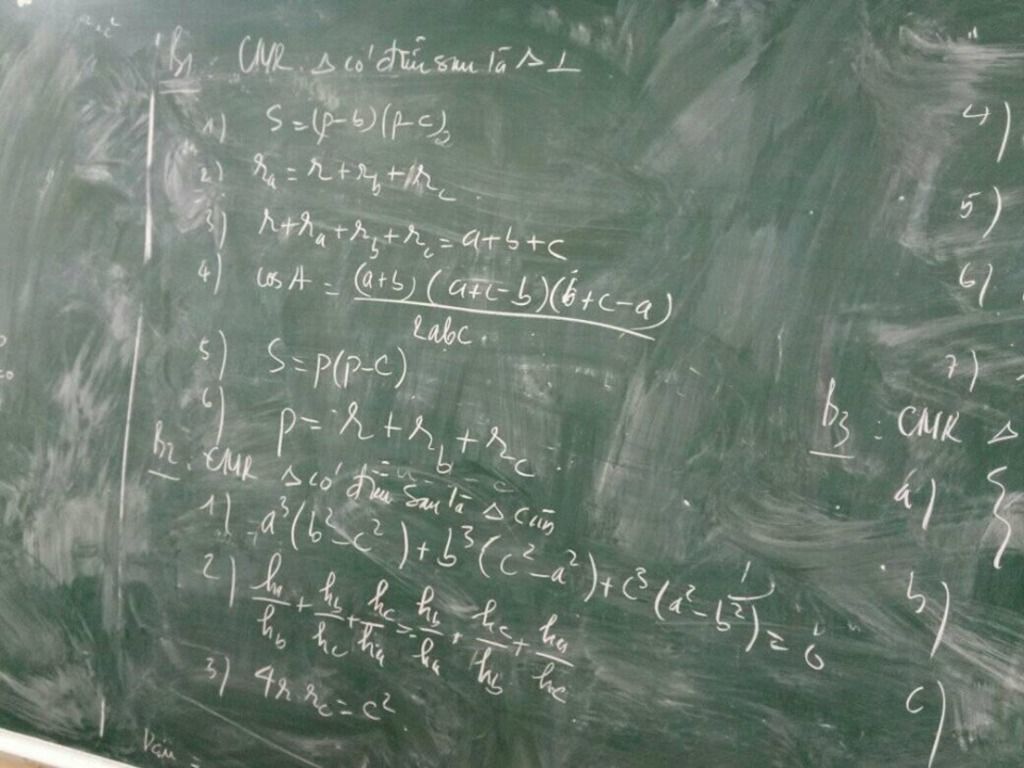 B1 : CMR Δ có điều sau là Δ ⊥
1) S=(p-b)(p-c)
2) r_a = r + r_b + r_c
3) r+r_a+r_b+r_c = a+b+c
4) cosA = (a+b)(a+c-b)(b+c-a) / 2abc
5) S=p(p-c)
6) p = r + r_b + r_c
B2 : CMR Δ có điều sau là Δ cân
1) a³(b²-c²)+b³(c²-a²)+c³(a²-b²) = 0
2) h_a/h_b + h_b/h_c + h_c/h_a = h_b/h_a + h_c/h_b + h_a/h_c
3) 4r r_c = c²
4)
5)
6)
7)
B3 : CMR Δ
a) {
b)
c)